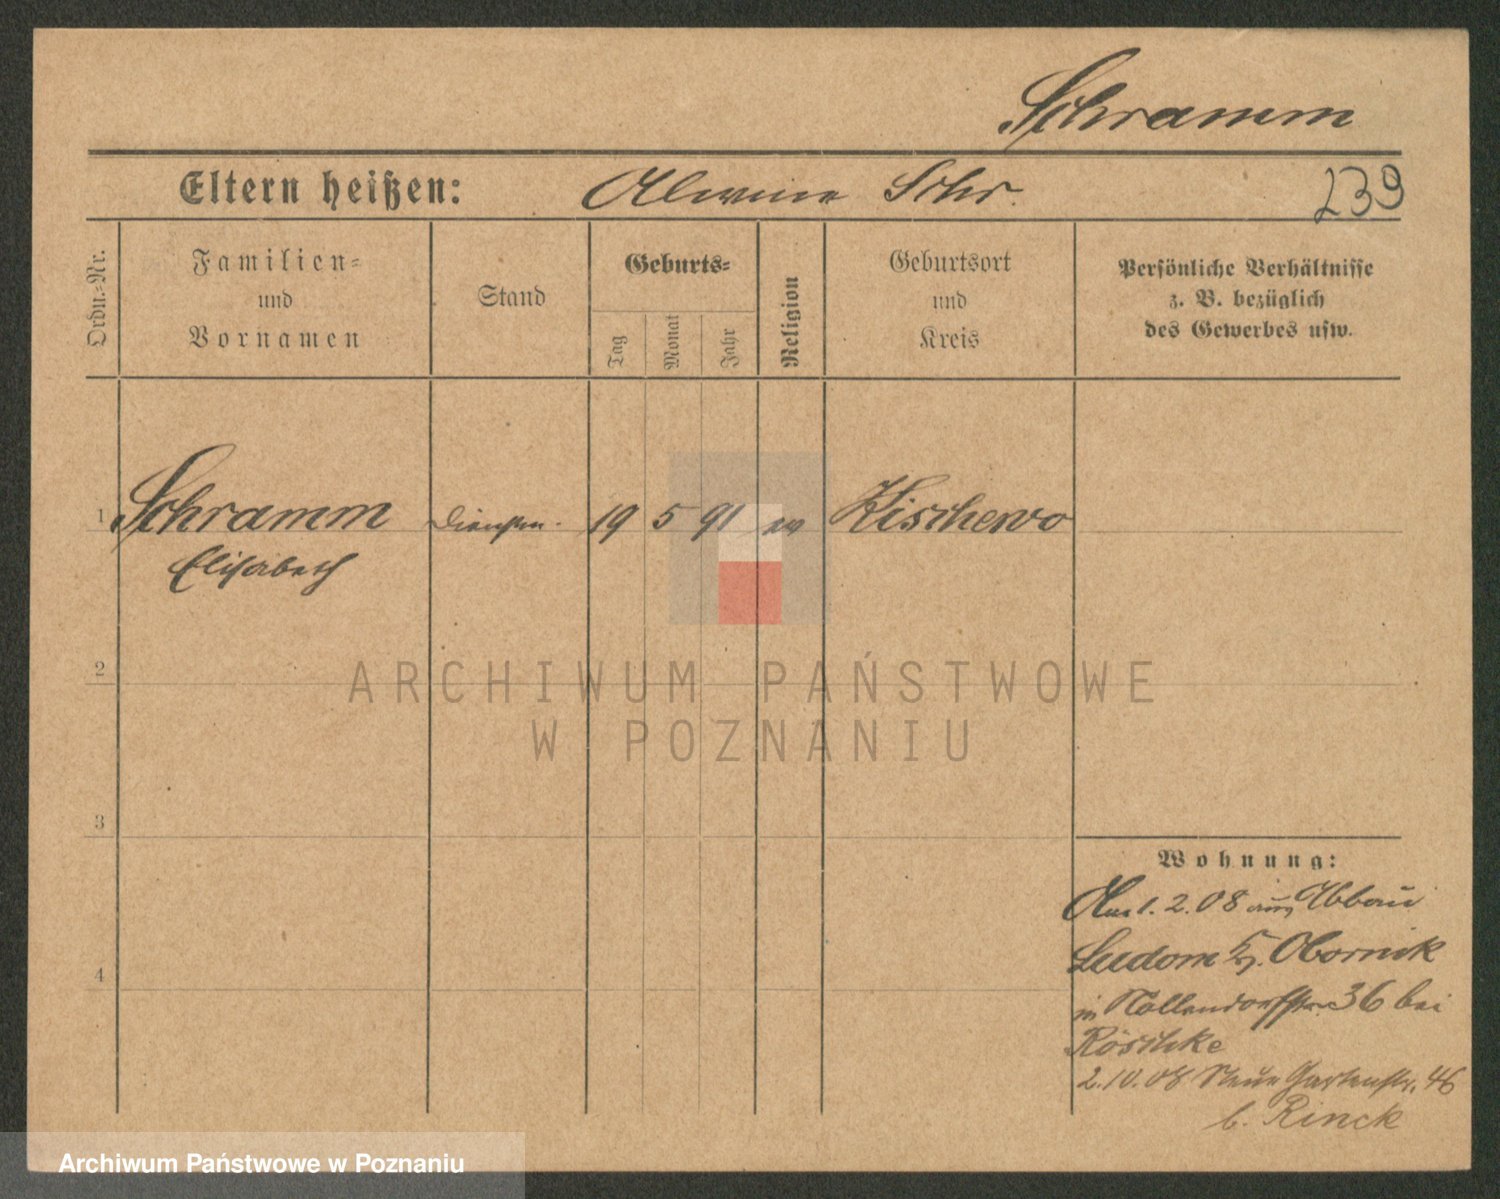 Schramm
Eltern heißen: Alwine Schr. 239
Ordn.-Nr.
Familien-
und
Vornamen
Stand
Geburts-
Tag
Monat
Jahr
Religion
Geburtsort
und
Kreis
Persönliche Verhältnisse
z. B. bezüglich
des Gewerbes usw.
1 Schramm Dienstm. 19 5 91 ev Kischewo
Elisabeth
2
3
4
Wohnung:
Am 1. 2. 08 aus Abbau
Ludom Kr. Obornik
in Nollendorfstr. 36 bei
Röschke
2.10.08 Neue Gartenstr. 46
b. Rinck
ARCHIWUM PAŃSTWOWE
W POZNANIU
Archiwum Państwowe w Poznaniu